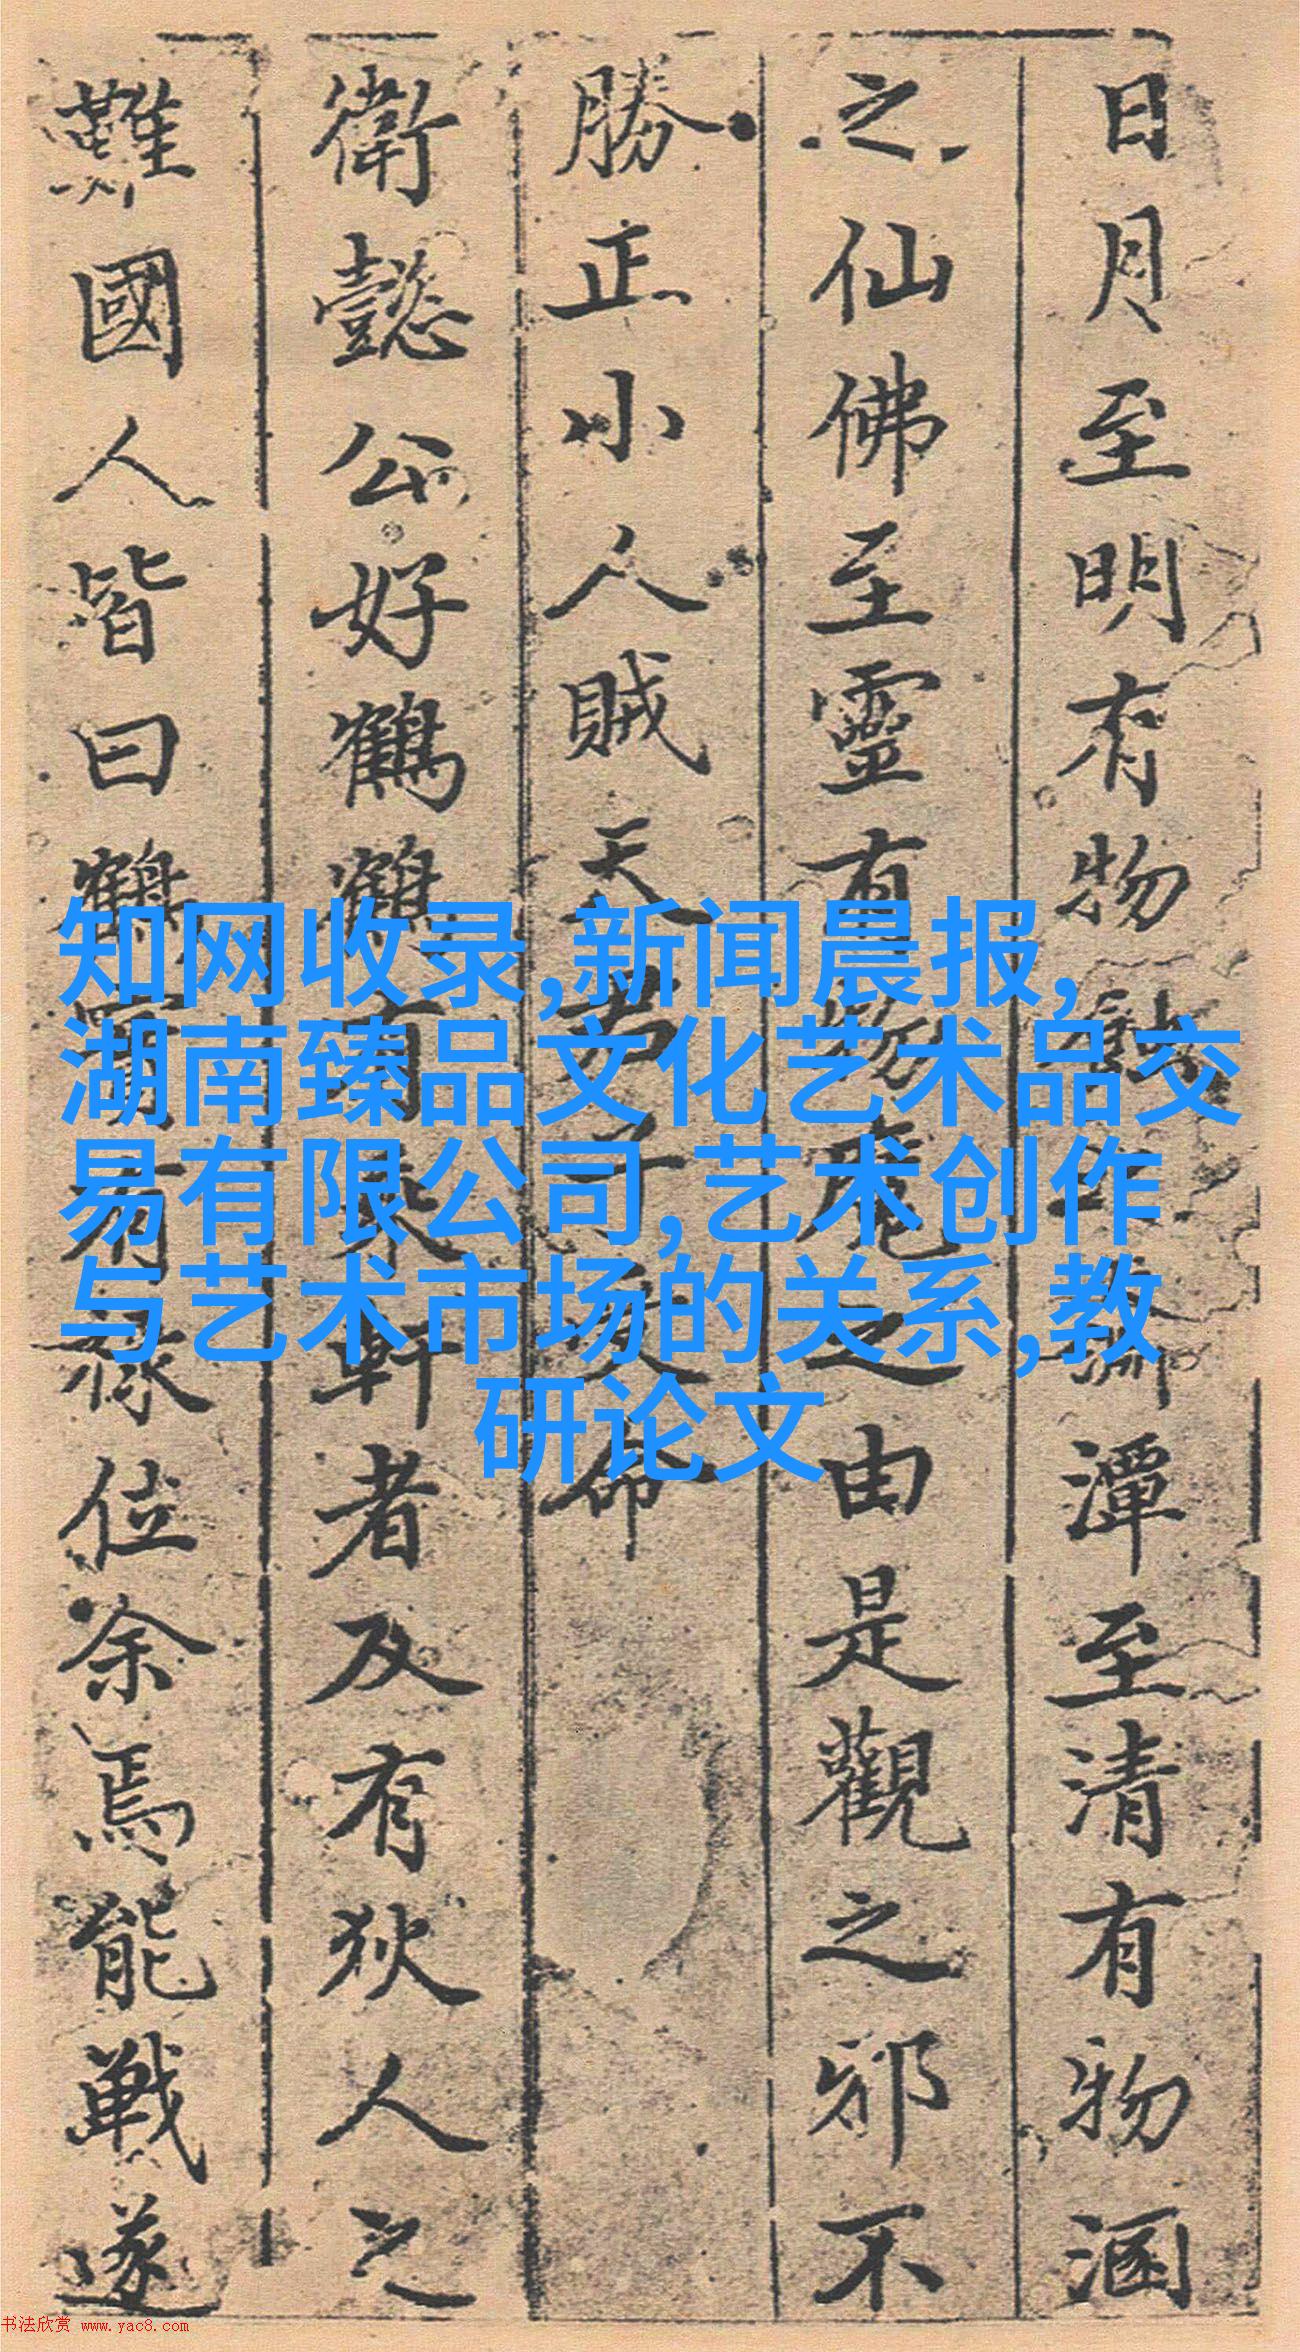 日月至明有物蝕之潭至清有物涵
之仙佛至靈有物魔之由是觀之邪不
勝正小人賊天君子受命
衛懿公好鶴鶴有乘軒者及有狄人之
難國人皆曰鶴實有祿位余焉能戰遂
知网收录,新闻晨报,
湖南臻品文化艺术品交
易有限公司,艺术创作
与艺术市场的关系,教
研论文
书法欣赏 www.yac8.com